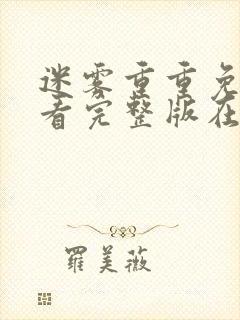 迷雾重重免
看完整版在
羅美薇